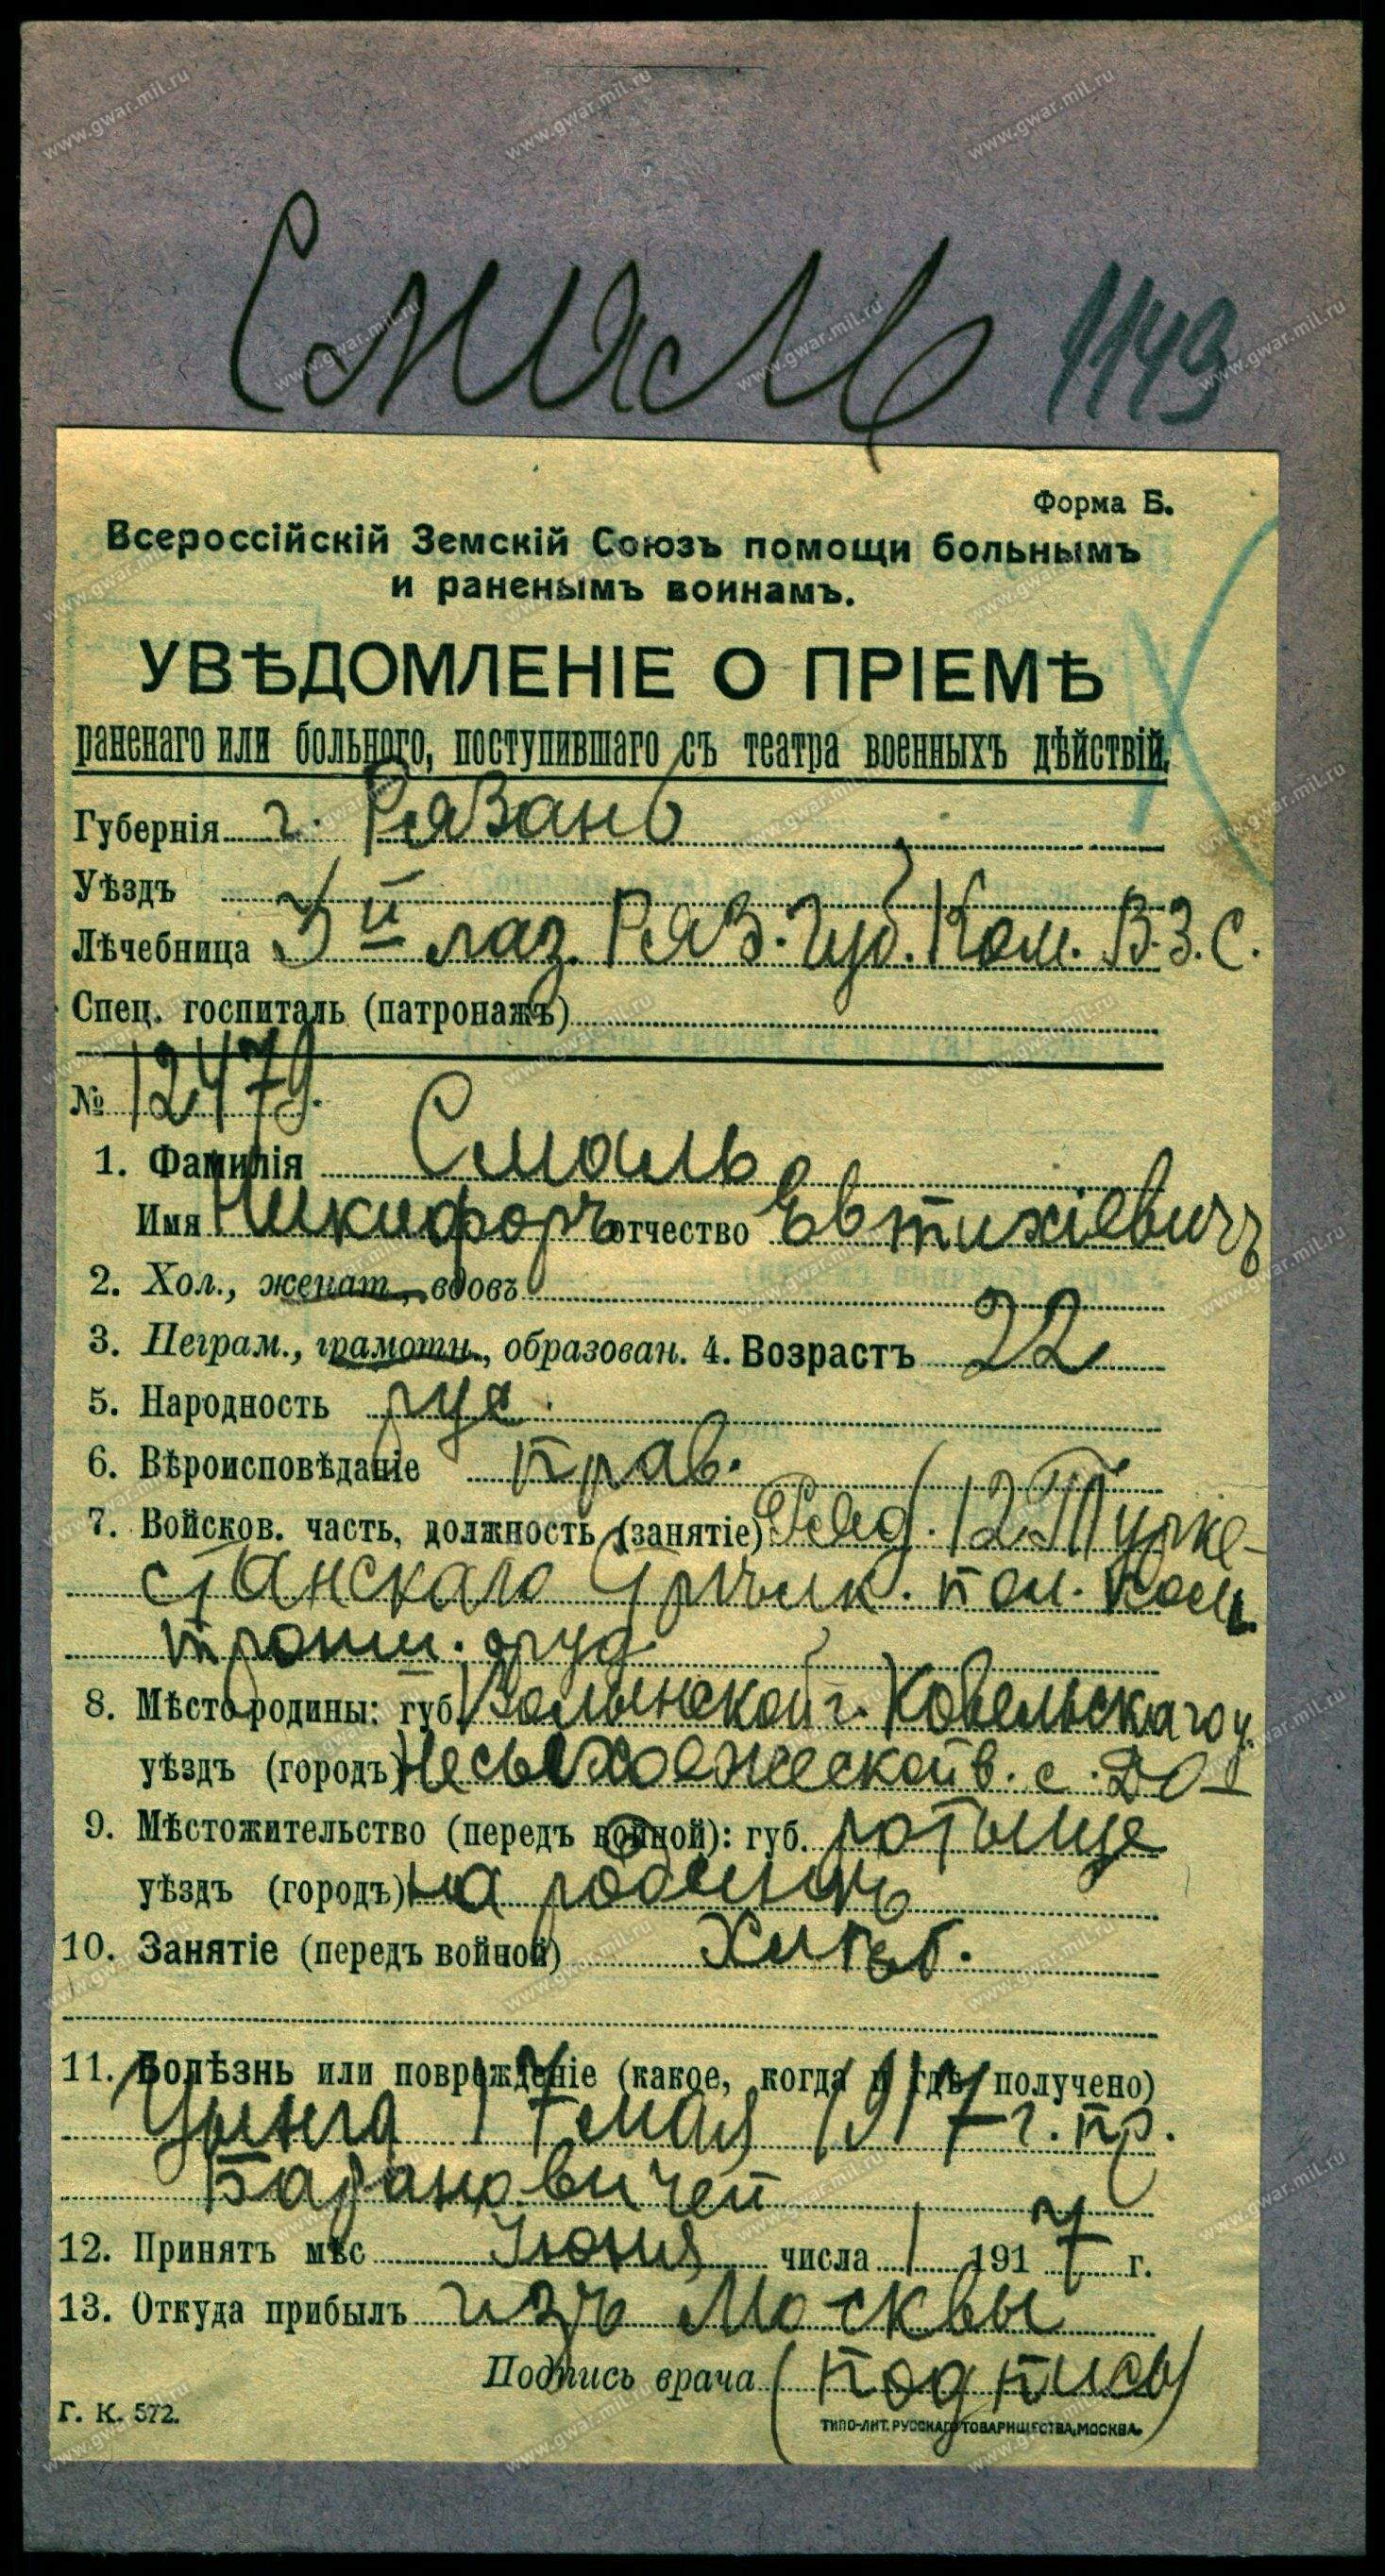 Смаль 1149
Форма Б.
Всероссійскій Земскій Союзъ помощи больнымъ
и раненымъ воинамъ.
УВѢДОМЛЕНІЕ О ПРІЕМѢ
раненаго или больного, поступившаго съ театра военныхъ дѣйствій.
Губернія г. Рязань
Уѣздъ
Лѣчебница 3й лаз. Ряз. Губ. Ком. В.З.С.
Спец. госпиталь (патронажъ)
№ 12479.
1. Фамилія Смаль
Имя Никифоръ отчество Евтихіевичъ
2. Хол., женат., вдовъ
3. Неграм., грамотн., образован. 4. Возрастъ 22
5. Народность рус.
6. Вѣроисповѣданіе прав.
7. Войсков. часть, должность (занятіе) Ряд. 12 Турке-
станскаго Стрѣлк. пол.
транш. оруд.
8. Мѣсто родины: губ. Волынской г. Ковельскаго у.
уѣздъ (городъ) в. с. До-
9. Мѣстожительство (передъ войной): губ. ротыще
уѣздъ (городъ) на родинѣ
10. Занятіе (передъ войной) Хлѣб.
11. Болѣзнь или поврежденіе (какое, когда и гдѣ получено)
Цынга 17 мая 1917 г. пр.
Барановичей
12. Принятъ мѣс Іюня числа 1 1917 г.
13. Откуда прибылъ изъ Москвы
Подпись врача (подпись)
Г. К. 572.
ТИПО-ЛИТ. РУССКАГО ТОВАРИЩЕСТВА, МОСКВА.
www.gwar.mil.ru